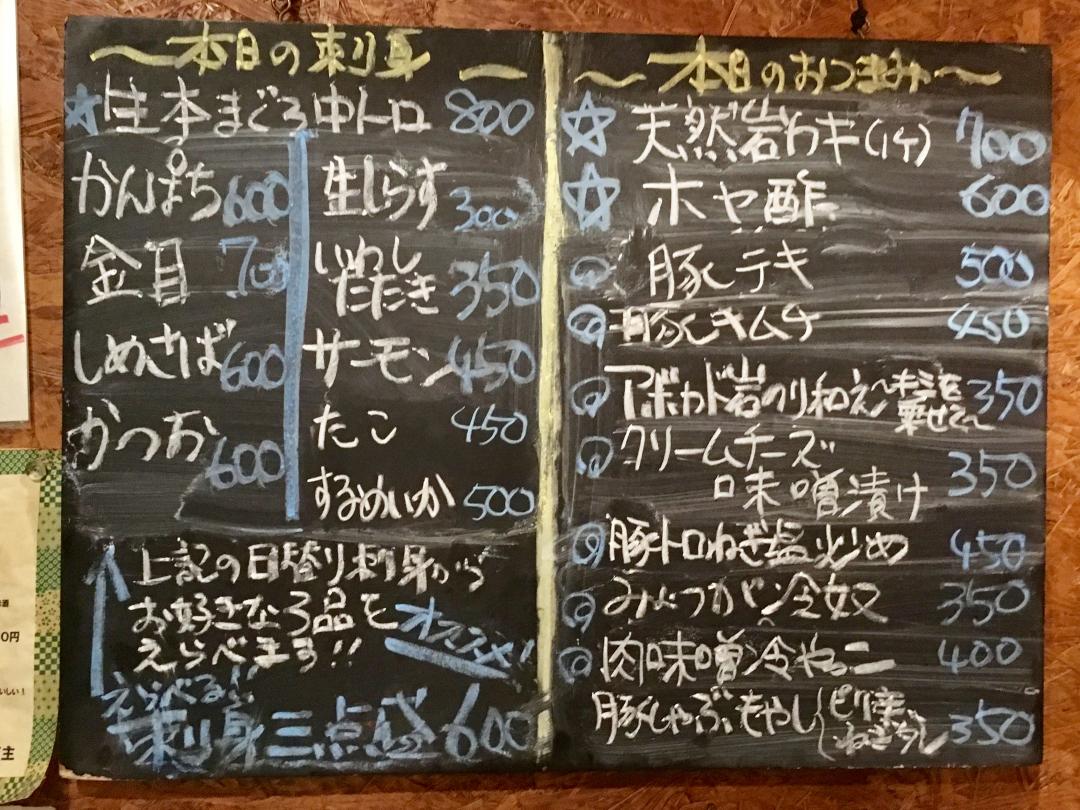 ～本日の刺身～
★生本まぐろ中トロ 800
かんぱち 600
金目 700
しめさば 600
かつお 600
生しらす 300
いわし
たたき 350
サーモン 450
たこ 450
するめいか 500
上記の日替り刺身から
お好きな3品を
えらべます!!
オススメ!
えらべる!!
刺身三点盛 600
～本日のおつまみ～
☆天然岩カキ(1ケ) 700
☆ホヤ酢 600
◎豚テキ 500
◎豚キムチ 450
◎アボカド岩のり和え～キミを
乗せて～ 350
◎クリームチーズ
味噌漬け 350
◎豚トロねぎ塩炒め 450
◎みょうが冷奴 350
◎肉味噌冷やっこ 400
豚しゃぶもやし 350
0円
主